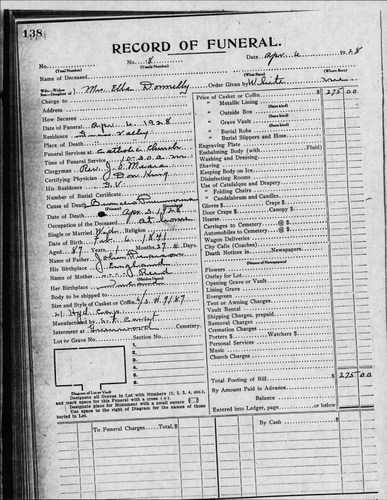 138
RECORD OF FUNERAL.
No. 8 Date Apr 6 1928
(Total Number) (Yearly Number)
Name of Deceased Mrs Ella Donnelly White
Charge to Order Given by
Address Price of Casket or Coffin 275 00
How Secured Metallic Lining
Date of Funeral Apr 6 1928 Outside Box
Residence Valley Grave Vault
Place of Death Burial Robe
Funeral Services at Catholic Church Burial Slippers and Hose
Time of Funeral Service 10:30 a. m. Engraving Plate
Clergyman Rev. J. Embalming Body (with Fluid)
Certifying Physician Don King Washing and Dressing
His Residence G.V. Shaving
Number of Burial Certificate Keeping Body on Ice
Cause of Death Disinfecting Rooms
Date of Death Apr 3, 1928 Use of Catafalque and Drapery
Occupation of the Deceased at home " Folding Chairs
Single or Married " Candelabrum and Candles
Date of Birth Feb 6 1841 Gloves $ Crape $
Aged 87 Years 1 Months 27 Days Door Crape $ Hearse $
Name of Father John Carriages to Cemetery @ $
His Birthplace England Automobiles to Cemetery @ $
Name of Mother Wagon Deliveries
Her Birthplace City Calls (Coaches)
Body to be shipped to Death Notices in Newspapers
Size and Style of Casket or Coffin (Names of Newspapers)
Flowers
Manufactured by Outlay for Lot
Interment at Greenwood Cemetery. Opening Grave or Vault
Lot or Grave No. Section No. Lining Grave
1 Evergreen
2 Tent or Awning Charges
3 Vault Rental
4 Shipping Charges, prepaid
5 Removal Charges
6 Cremation Charges
Porters $ Watchers $
Personal Services
Music
Church Charges
Diagram of Lot or Vault
Designate all Graves in Lot with Numbers (1, 2, 3, 4, etc.), Total Footing of Bill 275 00
and mark space for this Funeral with a cross (+) By Amount Paid in Advance
Designate place for Monument with a small square Balance
Use space to the right of Diagram for the names of those Entered into Ledger, page or below
buried in Lot.
To Funeral Charges, Total By Cash